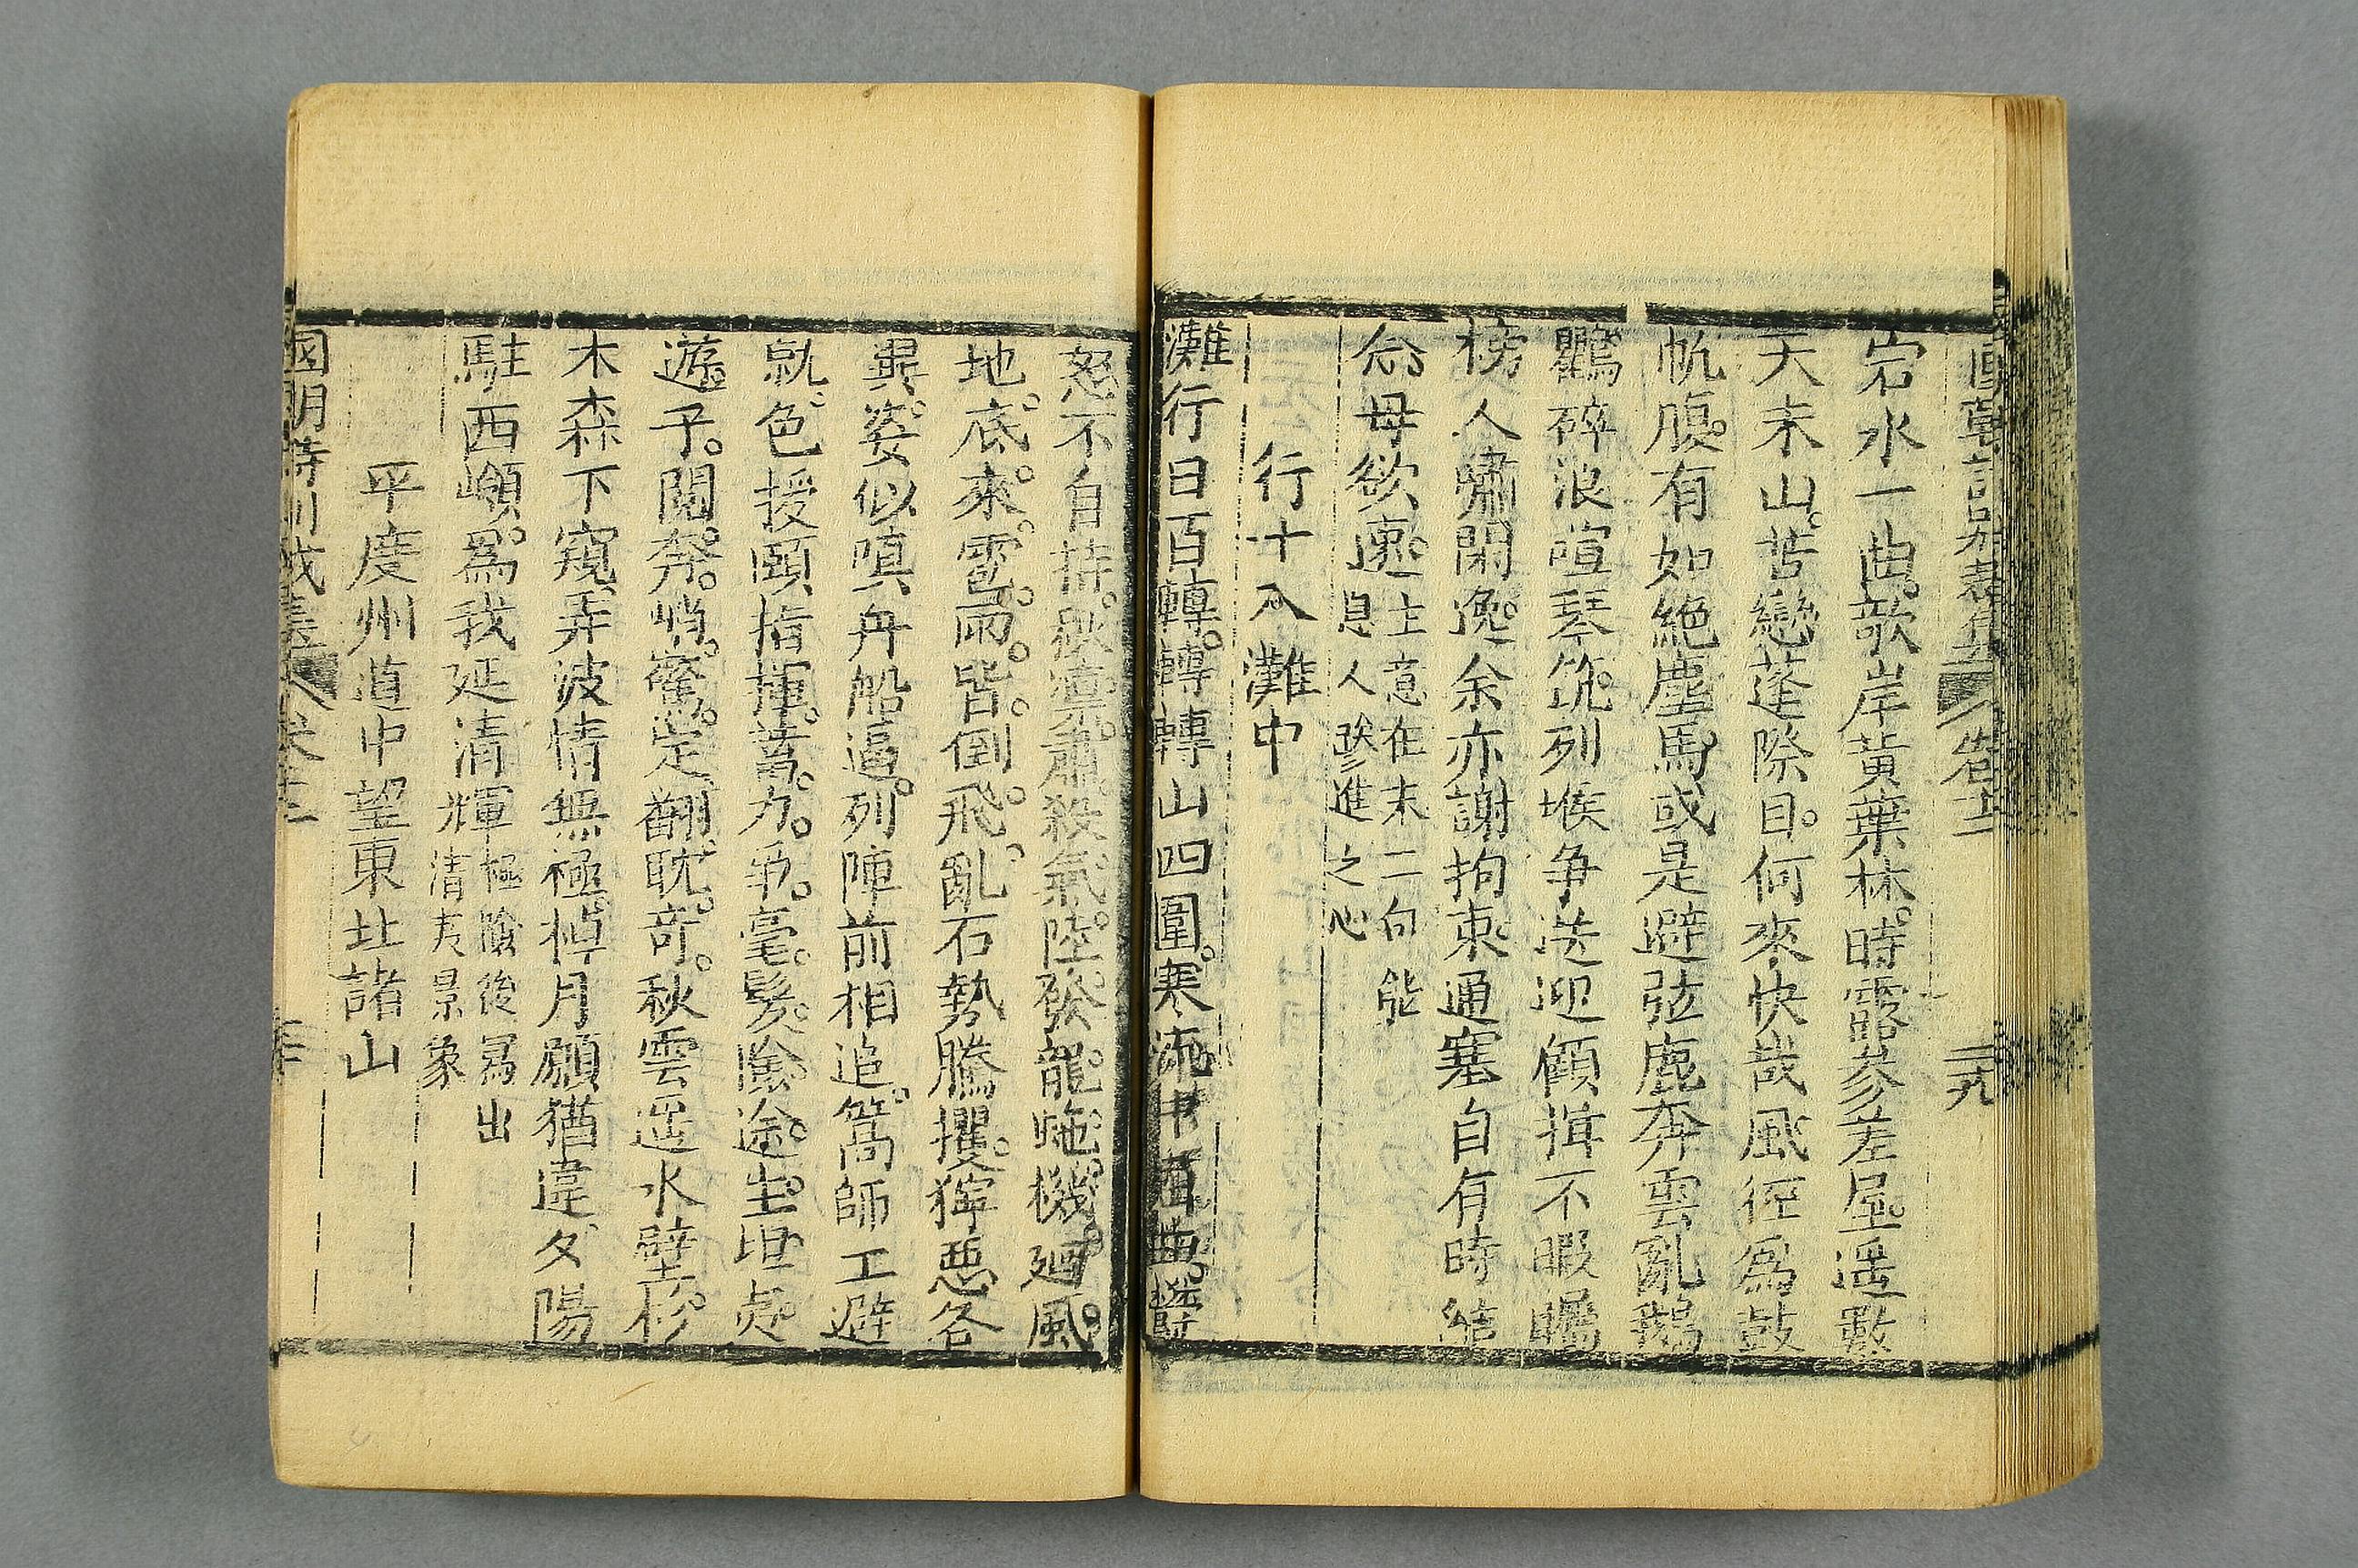 宕水一曲歌岸黃葉林時露參差屋遥數
天末山苦戀蓬際目何來快哉風徑爲鼓
帆腹有如絕塵馬或是避弦鹿奔雲亂鵝
鸛碎浪喧琴筑列堠争送迎顧揖不暇矚
榜人嘯閑逸余亦謝拘束通塞自有時結
念毋欲速
主意在末二句能
息人躁進之心
行十八灘中
灘行日百轉轉轉山四圍寒流
怒不自持秋稟肅殺氣陸發龍蛇機廻風
地底來雹雨皆倒飛亂石勢騰攫獰惡各
異姿似嗔舟船逼列陣前相追篙師工避
就色授頤指揮萬力争毫髮險途生坦夷
遊子閲奔峭驚定翻耽奇秋雲遥水壁杉
木森下窺弄波情無極棹月願猶違夕陽
駐西嶺爲我延清輝
極險後寫出
清夷景象
平度州道中望東北諸山
卷十二
二十九